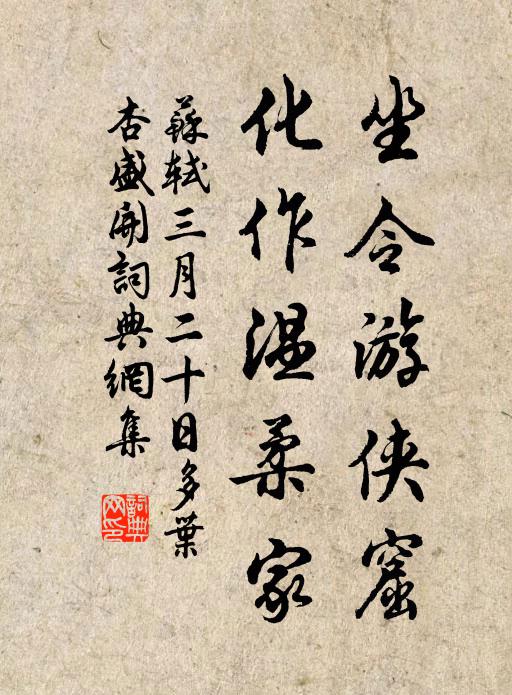 坐令游俠窟
化作溫柔家
蘇軾三月二十日多葉
杏盛開詞典網集
詞典
网印